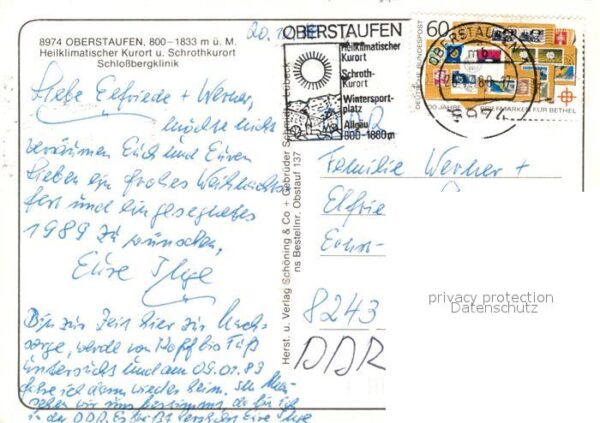 8974 OBERSTAUFEN, 800–1833 m ü. M.
Heilklimatischer Kurort u. Schrothkurort
Schloßbergklinik
20.12.
OBERSTAUFEN
Heilklimatischer
Kurort
Schroth-
Kurort
Wintersport-
platz
Allgäu
800-1880 m
60
DEUTSCHE BUNDESPOST
100 JAHRE BRIEFMARKEN FÜR BETHEL
OBERSTAUFEN 1
mb
8974
Liebe Elfriede + Werner,
möchte nicht
versäumen Euch und Euren
Lieben ein frohes Weihnachts
fest und ein gesegnetes
1989 zu wünschen,
Eure Ilse
Bin zur Zeit hier zur Nach-
sorge, werde von Kopf bis Fuß
untersucht und am 05.01.89
fahre ich dann wieder heim.
sehen wir uns bestimmt, da bin ich
in der DDR. Es grüßt herzlich Eure Ilse
Herst. u. Verlag Schöning & Co + Gebrüder Schmidt, Lübeck
ns Bestellnr. Obstauf 137
DDR
Familie Werner +
Elfrie
Ernst-
8243
DDR
privacy protection
Datenschutz